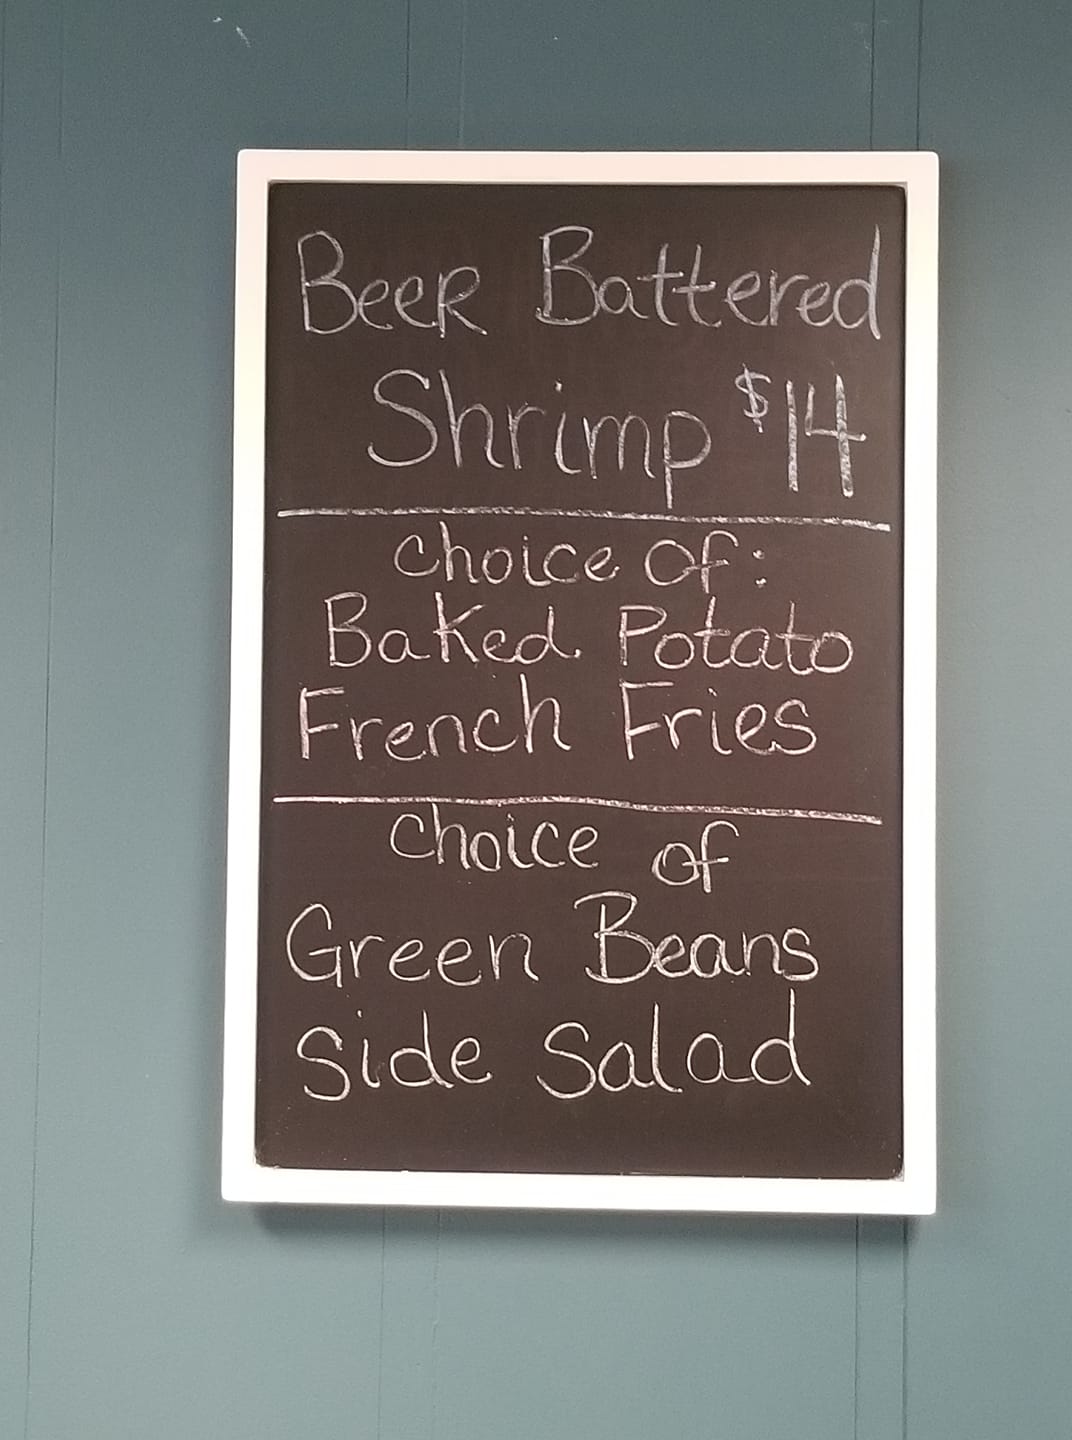 BeeR Battered
Shrimp $14
choice of:
Baked Potato
French Fries
choice of
Green Beans
side salad